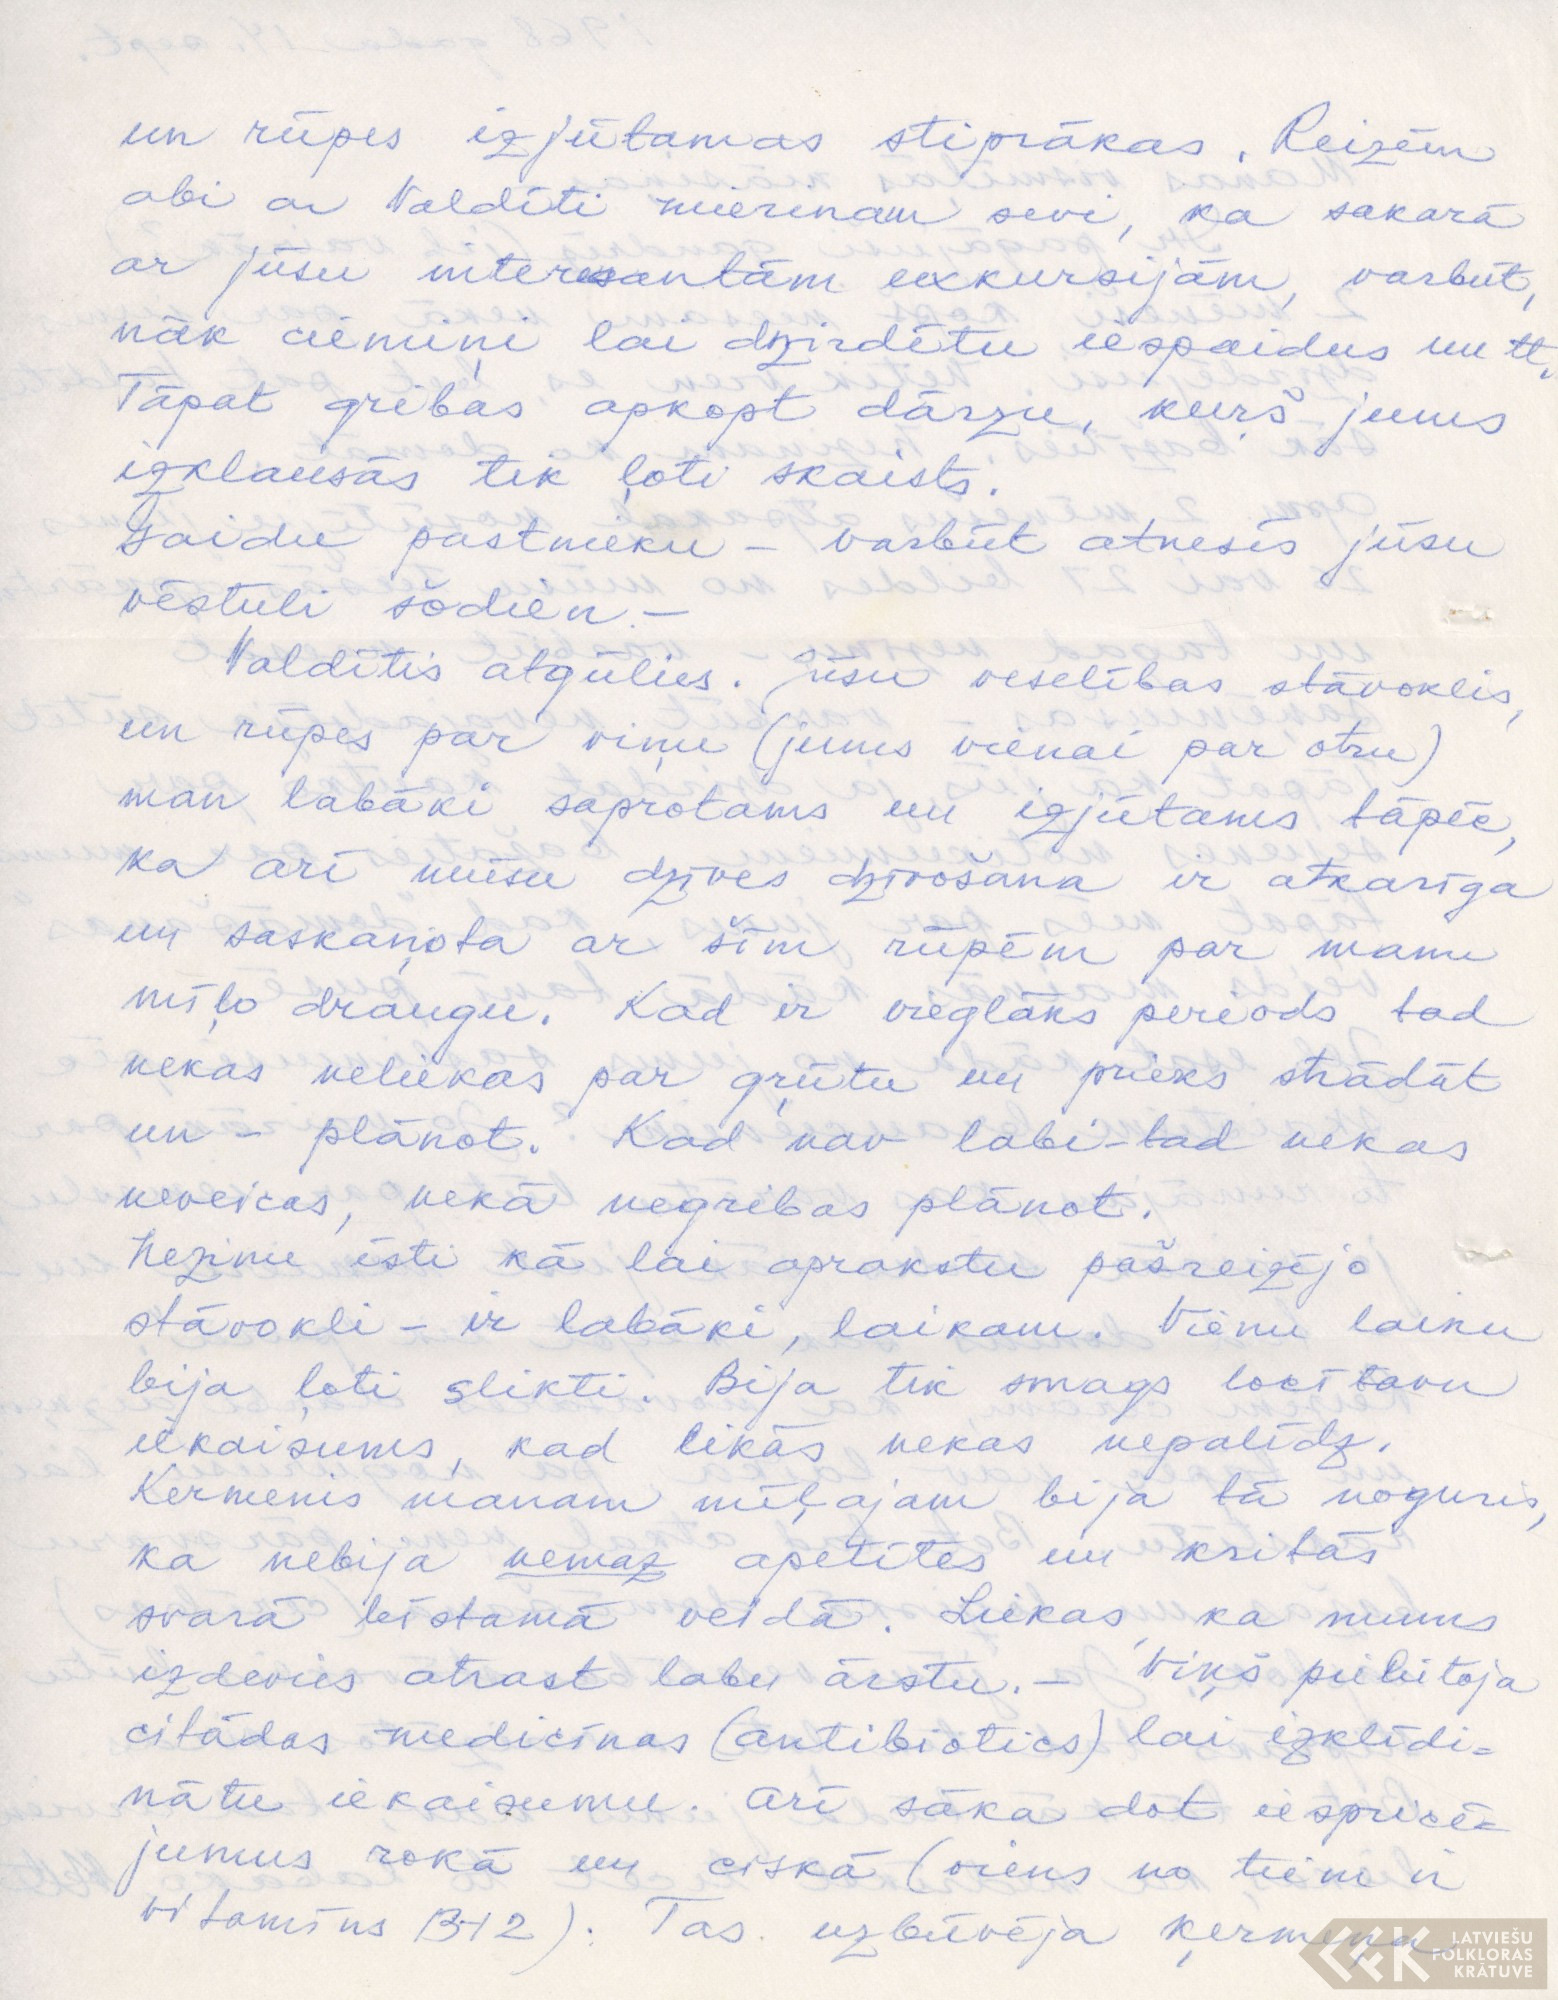 un rūpes izjūtamas stiprākas. Reizēm
abi ar Valdīti mierinam sevi, ka sakarā
ar jūsu interesantām exkursijām, varbūt,
nāk ciemiņi lai dzirdētu iespaidus un tt.
Tāpat gribas apkopt dārzu, kuŗš jums
izklausās tik ļoti skaists.
Gaidu pastnieku – varbūt atnesīs jūsu
vēstuli šodien. –
Valdītis atgūlies. Jūsu veselības stāvoklis,
un rūpes par viņu (jums vienai par otru)
man labāki saprotams un izjūtams tāpēc,
ka arī mūsu dzīves dzīvošana ir atkarīga
un saskaņota ar šīm rūpēm par manu
mīļo draugu. Kad ir vieglāks periods tad
nekas neliekas par grūtu un prieks strādāt
un – plānot. Kad nav labi – tad nekas
neveicas, nekā negribas plānot.
Nezinu īsti kā lai aprakstu pašreizējo
stāvokli – ir labāki, laikam. Vienu laiku
bija ļoti slikti. Bija tik smags locītavu
iekaisums, kad likās nekas nepalīdz.
Ķermenis manam mīļajam bija tā noguris,
ka nebija nemaz apetītes un kritās
svarā bīstamā veidā. Liekas, ka mums
izdevies atrast labu ārstu. – Viņš pielietoja
citādas medicīnas (antibiotics) lai izklīdi=
nātu iekaisumu. Arī sāka dot iespricē=
jumus rokā un ciskā (viens no tiem ir
vitamīns B-12). Tas uzbūvēja ķermeņa
LATVIEŠU
FOLKLORAS
KRĀTUVE